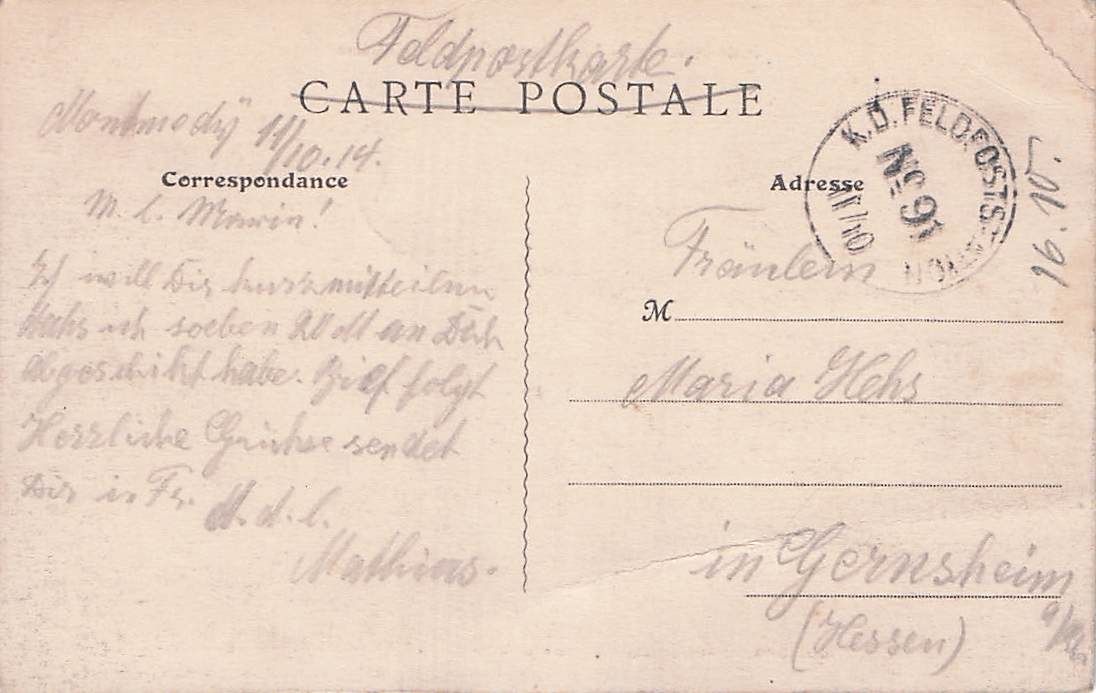 Feldpostkarte.
CARTE POSTALE
Montmedy 11/10.14.
Correspondance
M. l. Maria!
Ich will Dir kurz mitteilen
dahs ich soeben 20 M an Dich
abgeschikt habe. Brief folgt
Herzliche Grühse sendet
Dir in Fr. d. l.
Mathias.
Adresse
K.D. FELDPOSTSTATION
No 91
11/10
16.10.
Fräulein
M
Maria Hehs
in Gernsheim
(Hessen)
a/Rh.